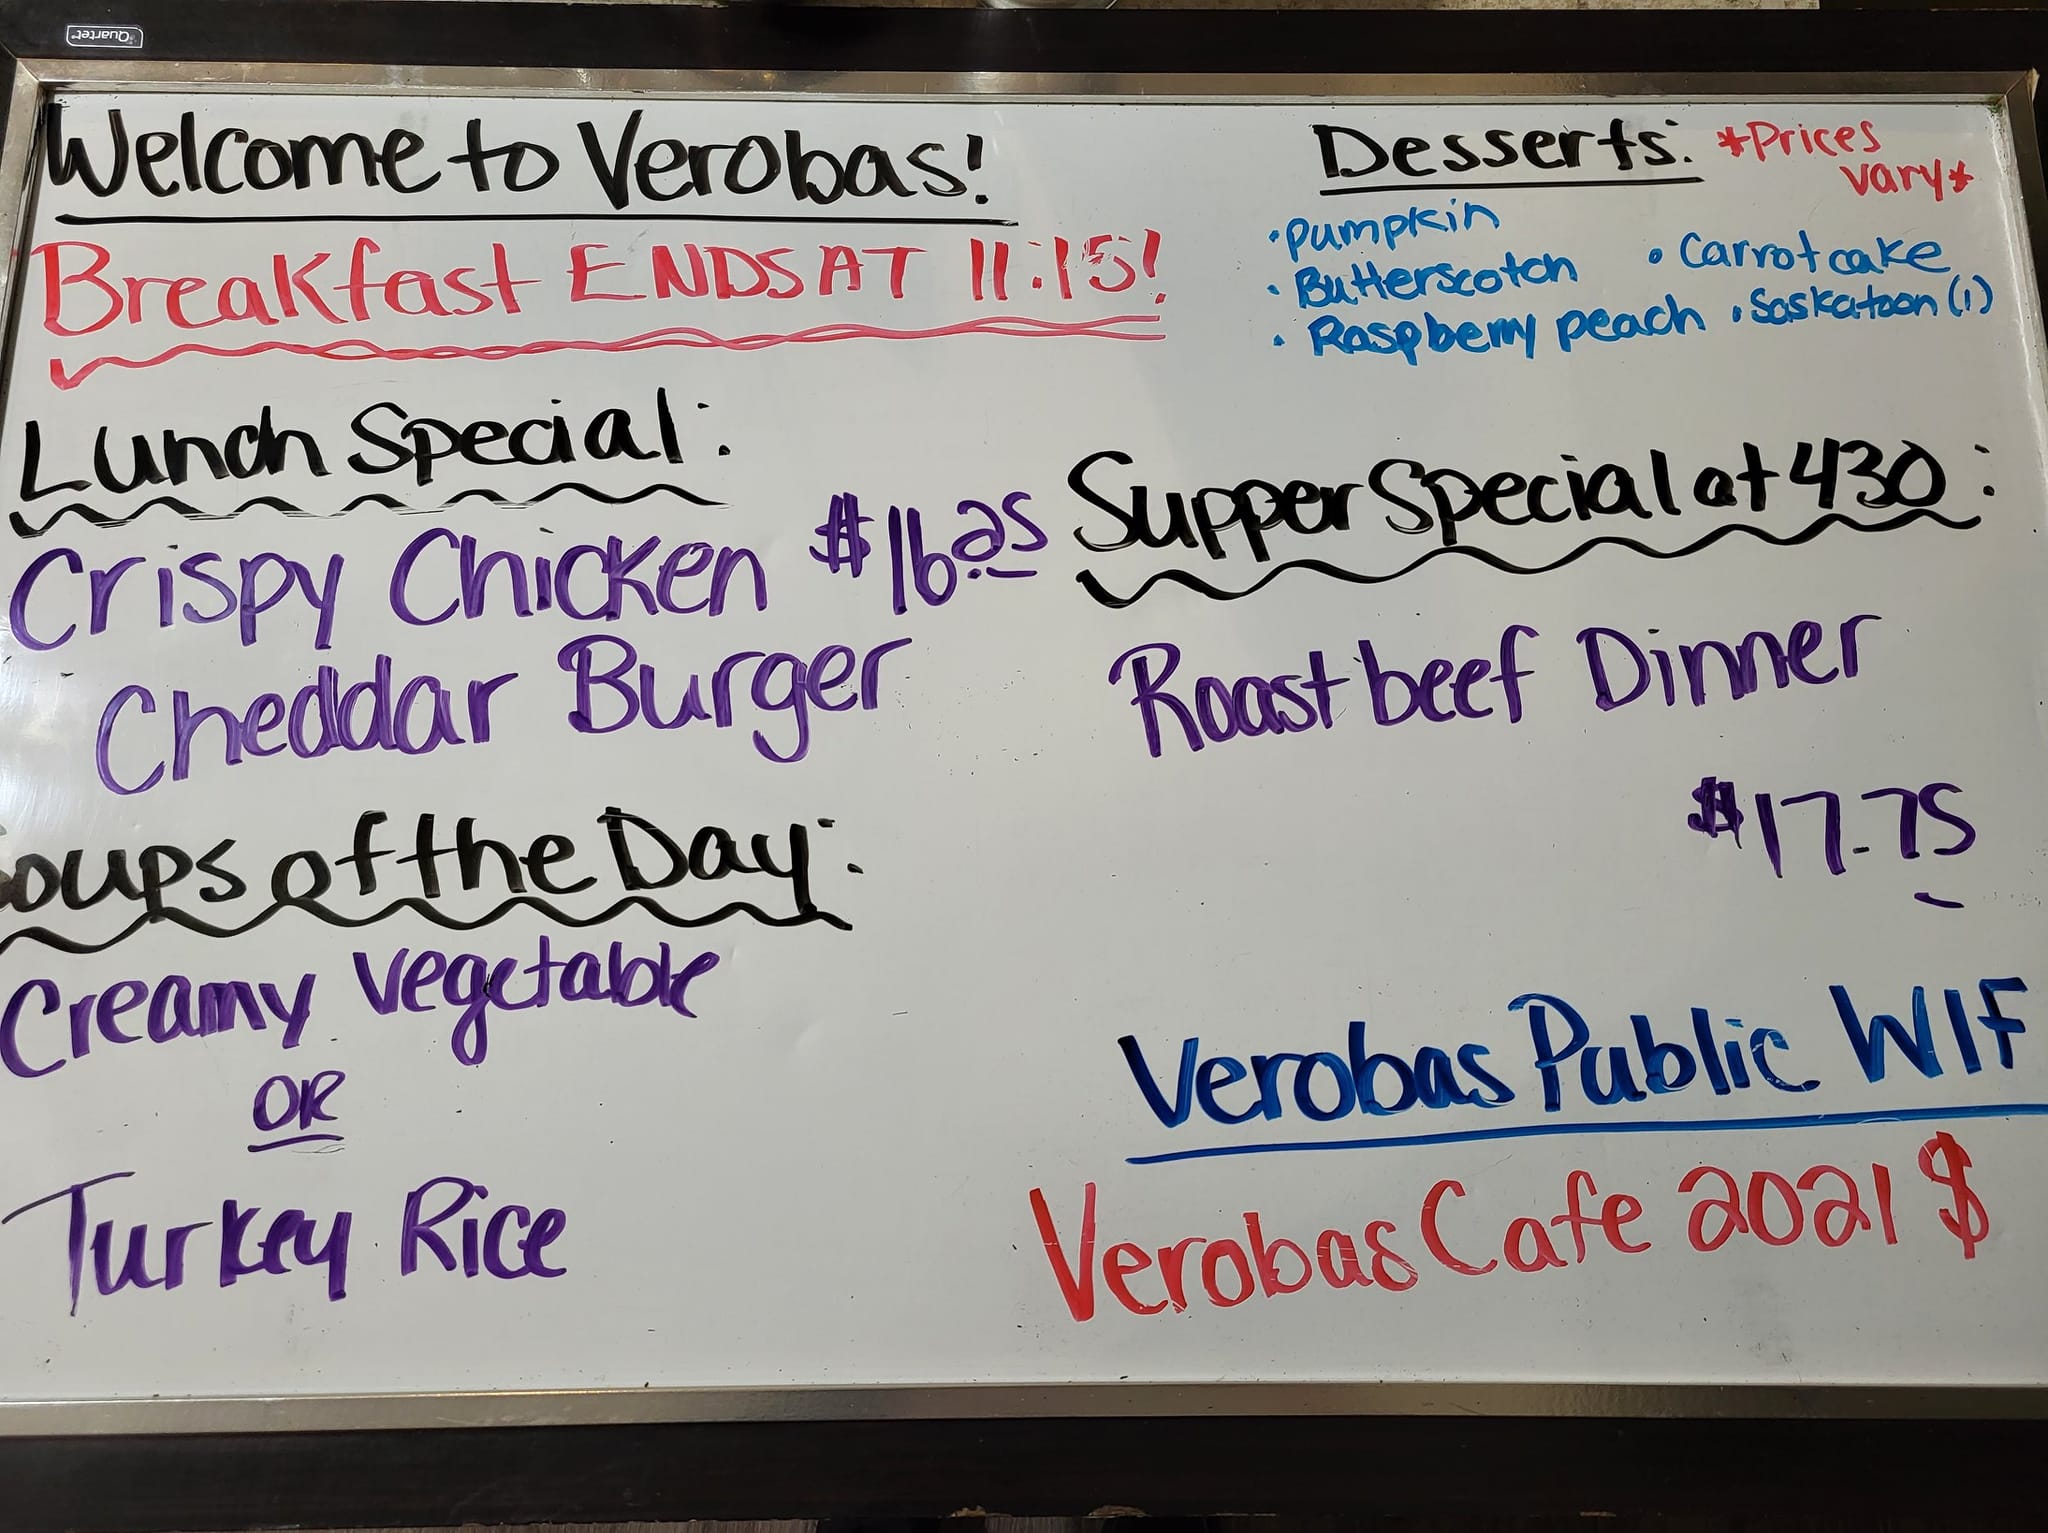 Quartet
Welcome to Verobas!
Breakfast ENDS AT 11:15!
Lunch Special:
Crispy Chicken $16.25
Cheddar Burger
Soups of the Day:
Creamy vegetable
OR
Turkey Rice
Desserts: *Prices
vary*
• Pumpkin
• Butterscotch
• Raspberry peach
• Carrot cake
• Saskatoon (1)
Supper Special at 430:
Roast beef Dinner
$17.75
Verobas Public WIF
Verobas Cafe 2021 $